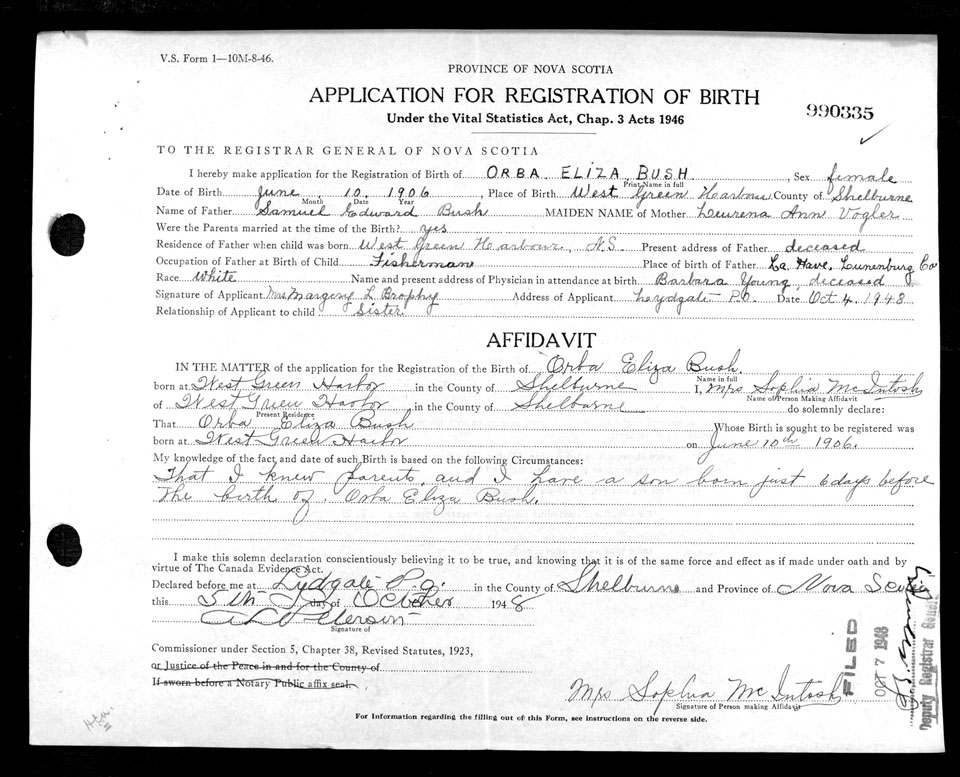 V.S. Form 1—10M-8-46.
PROVINCE OF NOVA SCOTIA
APPLICATION FOR REGISTRATION OF BIRTH
990335
Under the Vital Statistics Act, Chap. 3 Acts 1946
TO THE REGISTRAR GENERAL OF NOVA SCOTIA
I hereby make application for the Registration of Birth of ORBA ELIZA BUSH, Sex female
Print Name in full
Date of Birth June 10 1906, Place of Birth West Green Harbour County of Shelburne
Month Date Year
Name of Father Samuel Edward Bush MAIDEN NAME of Mother Leurena Ann Vogler
Were the Parents married at the time of the Birth? yes
Residence of Father when child was born West Green Harbour, N.S. Present address of Father deceased
Occupation of Father at Birth of Child Fisherman Place of birth of Father La Have, Lunenburg Co
Race White Name and present address of Physician in attendance at birth Barbara Young deceased
Signature of Applicant Mrs Margery L Brophy Address of Applicant Lydgate P.O. Date Oct 4, 1948
Relationship of Applicant to child Sister
AFFIDAVIT
IN THE MATTER of the application for the Registration of Birth of Orba Eliza Bush.
Name in full
born at West Green Harbor in the County of Shelburne I, Mrs Sophia McIntosh
Name of Person Making Affidavit
of West Green Harbor in the County of Shelburne do solemnly declare:
Present Residence
That Orba Eliza Bush Whose Birth is sought to be registered was
born at West Green Harbor on June 10th 1906.
My knowledge of the fact and date of such Birth is based on the following Circumstances:
That I knew parents, and I have a son born just 6 days before
the birth of Orba Eliza Bush.
I make this solemn declaration conscientiously believing it to be true, and knowing that it is of the same force and effect as if made under oath and by
virtue of The Canada Evidence Act.
Declared before me at Lydgate P.O. in the County of Shelburne and Province of Nova Scotia
this 5th day of October 1948
Signature of
Commissioner under Section 5, Chapter 38, Revised Statutes, 1923,
or Justice of the Peace in and for the County of
If sworn before a Notary Public affix seal.
Mrs Sophia McIntosh
Signature of Person making Affidavit
For Information regarding the filling out of this Form, see instructions on the reverse side.
FILED
OCT 7 1948
Deputy Registrar